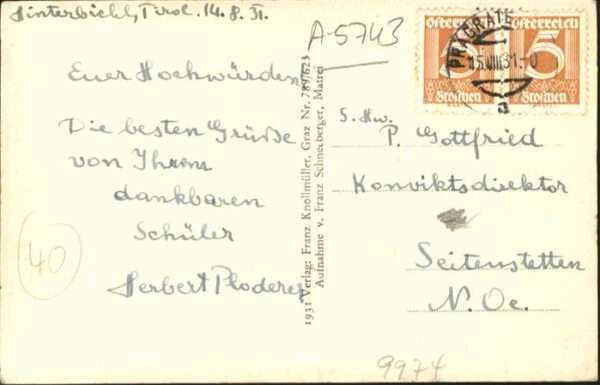 Hinterbichl, Tirol. 14. 8. 31.
Euer Hochwürden
Die besten Grüße
von Ihrem
dankbaren
Schüler
Herbert Ploderer
40
1931 Verlag: Franz Knollmüller, Graz Nr. 789/623
Aufnahme v. Franz Schneeberger, Matrei
A-5743
Österreich
5
Groschen
Österreich
5
Groschen
PRÄGRATEN
15.VIII.31.-0
a
S. Hw.
P. Gottfried
Konviktsdirektor
Seitenstetten
N. Oe.
9974